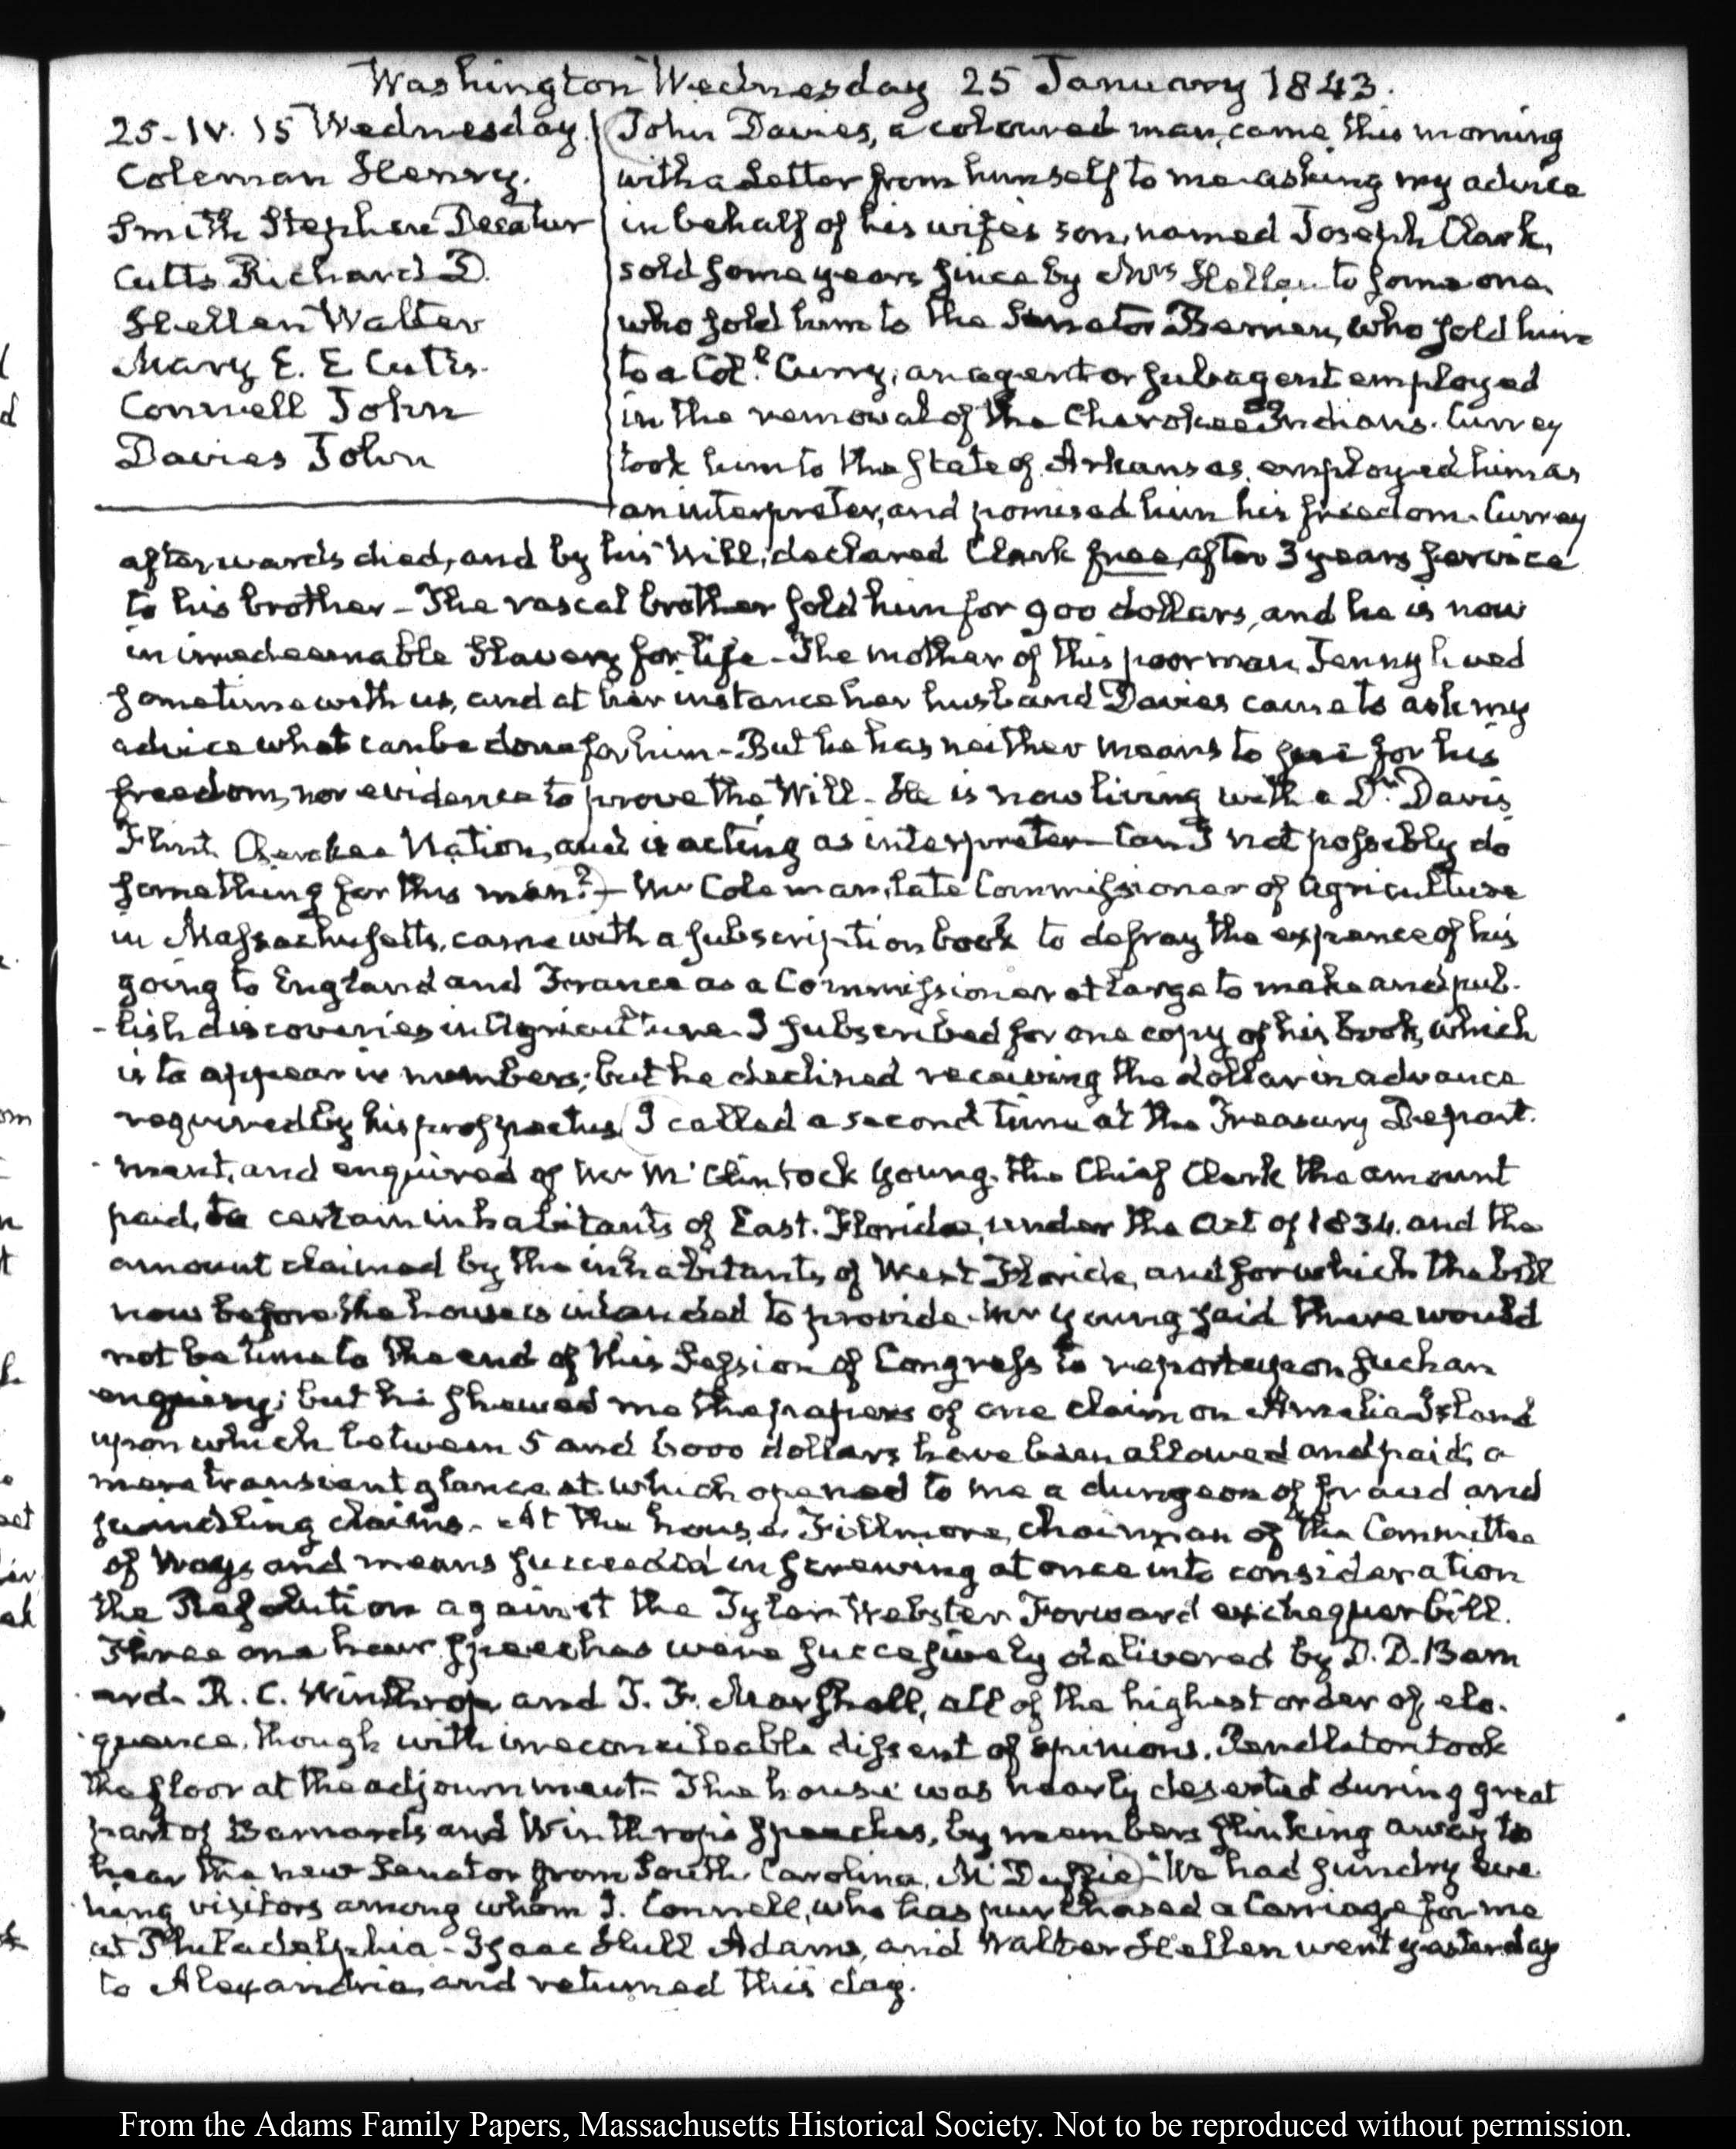 Washington Wednesday 25 January 1843.
25. IV. 15 Wednesday.
Coleman Henry.
Smith Stephen Decatur
Cutts Richard D.
Hellen Walter
Mary E. E Cutts.
Connell John
Davies John
John Davies, a coloured man, came this morning
with a Letter from himself to me asking my advice
in behalf of his wife's son, named Joseph Clark,
sold some years since by Mrs Hellen to some one,
who sold him to the Senator Berrien, who sold him
to a Coll. Curry, an agent or subagent employed
in the removal of the Cherokee Indians. Currey
took him to the State of Arkansas, employed him as
an interpreter, and promised him his freedom. Currey
afterwards died, and by his Will, declared Clark free, after 3 years service
to his brother – The rascal brother sold him for 900 dollars, and he is now
in irredeemable Slavery for life – The mother of this poor man Jenny lived
sometime with us, and at her instance her husband Davies came to ask my
advice what can be done for him – But he has neither means to sue for his
freedom, nor evidence to prove the Will – He is now living with a Dr. Davis
Flint Cherokee Nation, and is acting as interpreter – Can I not possibly do
something for this man?) – Mr Coleman, late Commissioner of Agriculture
in Massachusetts, came with a subscription book to defray the expence of his
going to England and France as a Commissioner at large to make and pub-
-lish discoveries in Agriculture. I subscribed for one copy of his book, which
is to appear in numbers; but he declined receiving the dollar in advance
required by his prospectus (I called a second time at the Treasury Depart-
-ment, and enquired of Mr McClintock Young, the Chief Clerk the amount
paid, to certain inhabitants of East. Florida, under the Act of 1834. and the
amount claimed by the inhabitants of West Florida, and for which the bill
now before the house is intended to provide. Mr Young said there would
not be time to the end of this Session of Congress to report upon such an
enquiry; but he shewed me the papers of one claim on Amelia Island
upon which between 5 and 6000 dollars have been allowed and paid; a
mere transient glance at which opened to me a dungeon of fraud and
swindling claims. – At the house, Fillmore, chairman of the Committee
of Ways and means succeeded in screwing at once into consideration
the Resolution against the Tyler Webster Forward exchequer bill.
Three one hour speeches were successively delivered by D. D. Barn
ard. R. C. Winthrop and T. F. Marshall, all of the highest order of elo-
-quence, though with irreconcileable dissent of opinions. Pendleton took
the floor at the adjournment – The house was nearly deserted during great
part of Barnard's and Winthrop's speeches, by members slinking away to
hear the new Senator from South Carolina, McDuffie) – We had sundry eve
ning visitors among whom J. Connell, who has purchased a Carriage for me
at Philadelphia – Isaac Hull Adams, and Walter Hellen went yesterday
to Alexandria, and returned this day.
From the Adams Family Papers, Massachusetts Historical Society. Not to be reproduced without permission.